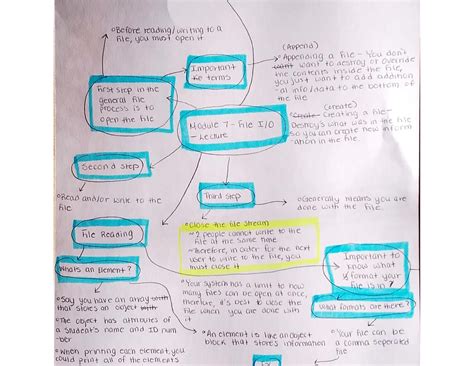 °Before reading/writing to a
file, you must open it
Important
te terms
(Append)
°Appending a file - You don't
want want to destroy or override
the contents inside the file,
you just want to add addition
-al info/data to the bottom of
the file
First step in the
general file
process is to
open the file
Module 7 - File I/O
- Lecture
(create)
°Create- Creating a file-
Destroy's what was in the file
so you can create new inform
ation in the file.
Second step
°Read and/or write to the
file
Third step
°Generally means you are
done with the file.
File Reading
°Close the file stream
~ 2 people cannot write to the
file at the same name
~ therefore, in order for the next
user to write to the file, you
must close it
Important to
know what
format your
file is in?
What's an Element?
°Say you have an array with
that stores an object
°The object has attributes of
a student's name and ID num
ber
°When printing each element, you
could print all of the elements
°Your system has a limit to how
many files can be open at once,
therefore, it's best to close the
file when you are done with
it
What formats are there?
°An element is like an object
block that stores information
°Your file can be
a comma seperated
file